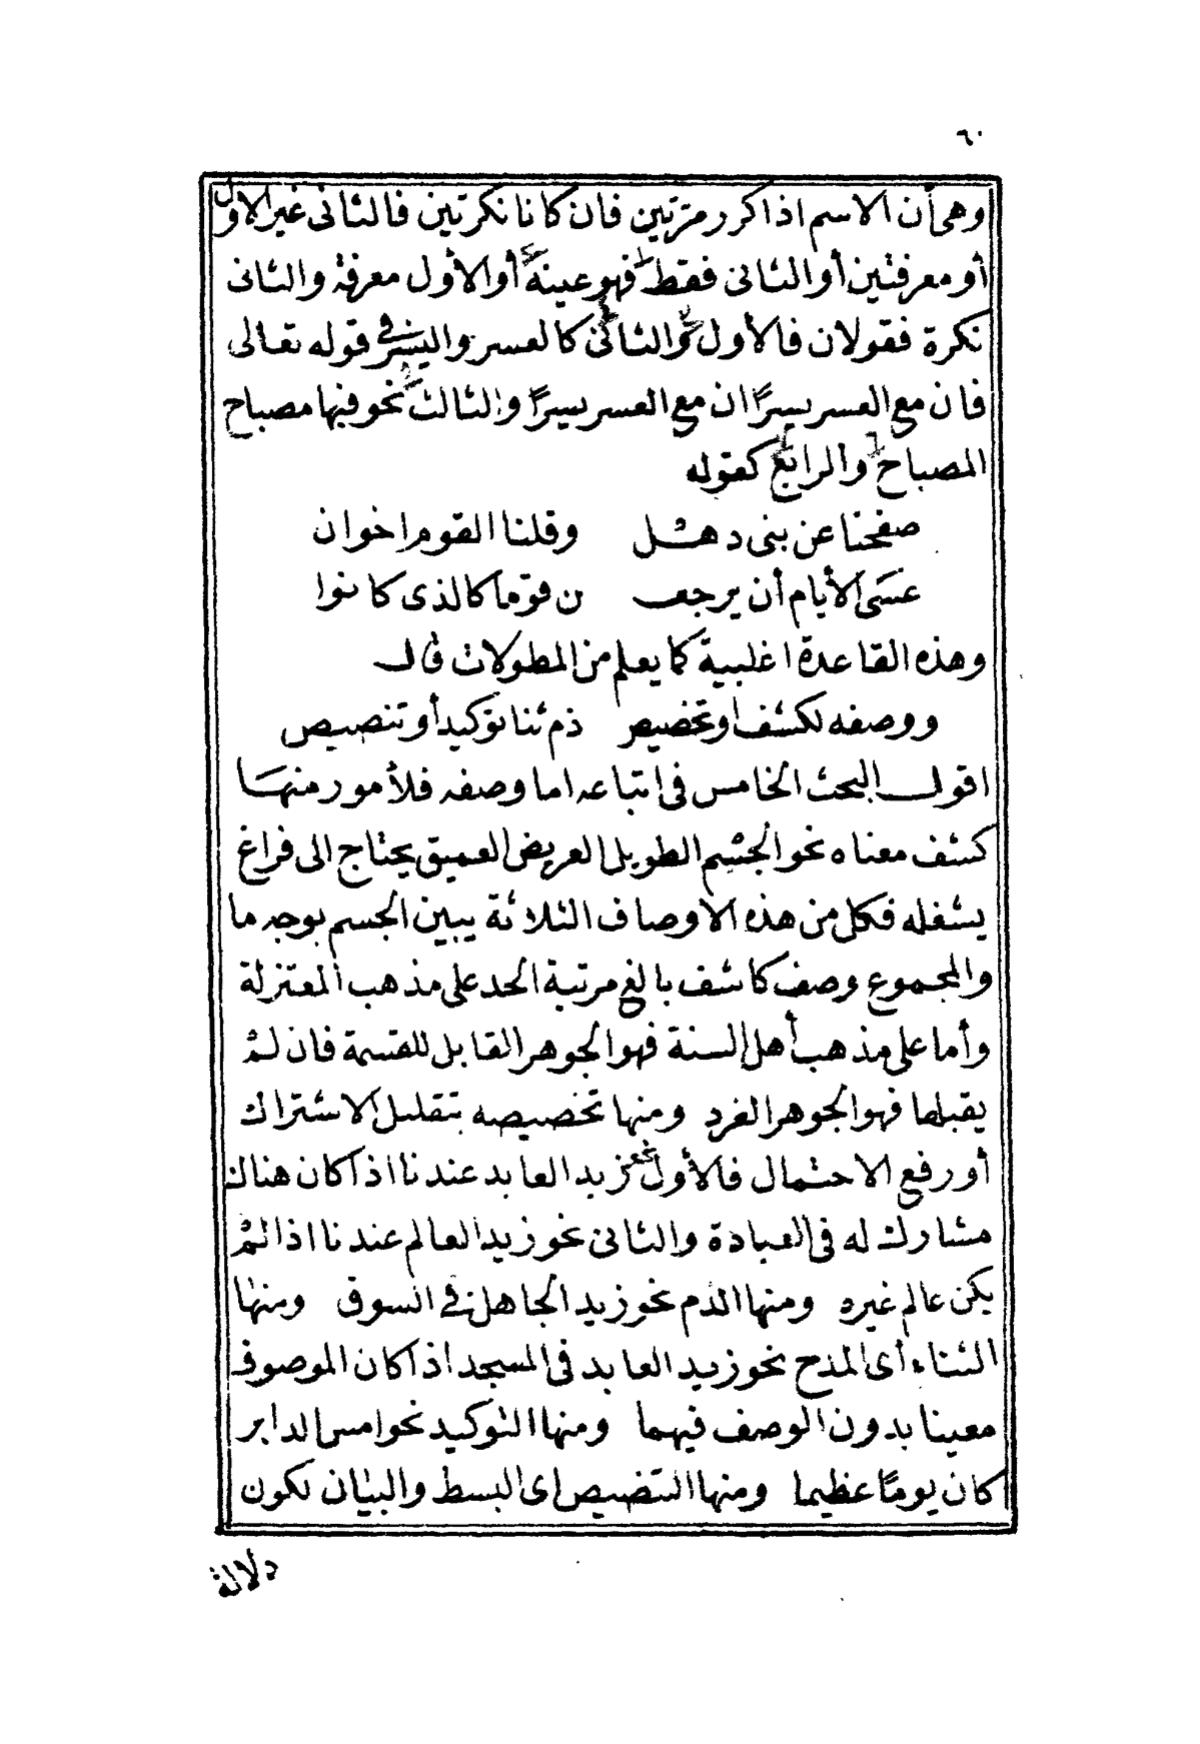 ٦٠
وهى أن الاسم اذا كرر مرتين فان كانا نكرتين فالثانى غير الاول
أو معرفتين أو الثانى فقط فهو عينه أو الأول معرفة والثانى
نكرة فقولان فالأول والثانى كالعسر واليسر فى قوله تعالى
فان مع العسر يسرًا ان مع العسر يسرًا والثالث نحو فيها مصباح
المصباح والرابع كقوله
صفحنا عن بنى دهشل وقلنا القوم اخوان
عسَى الأيام أن يرجعـ ن قومًا كالذى كانوا
وهذه القاعدة اغلبية كما يعلم من المطولات قال
ووصفه لكشف او تخصيص ذم ثنا توكيد أو تنصيص
اقول البحث الخامس فى اتباعه اما وصفه فلأمور منها
كشف معناه نحو الجسم الطويل العريض العميق يحتاج الى فراغ
يشغله فكل من هذه الاوصاف الثلاثة يبين الجسم بوجه ما
والمجموع وصف كاشف بالغ مرتبة الحد على مذهب المعتزلة
وأما على مذهب أهل السنة فهو الجوهر القابل للقسمة فان لم
يقبلها فهو الجوهر الفرد ومنها تخصيصه بتقليل الاشتراك
أو رفع الاحتمال فالأول نحو زيد العابد عندنا اذا كان هناك
مشارك له فى العبادة والثانى نحو زيد العالم عندنا اذا لم
يكن عالم غيره ومنها الذم نحو زيد الجاهل فى السوق ومنها
الثناء أى المدح نحو زيد العابد فى المسجد اذا كان الموصوف
معينا بدون الوصف فيهما ومنها التوكيد نحو امس الدابر
كان يومًا عظيما ومنها التنصيص اى البسط والبيان لكون
دلالة